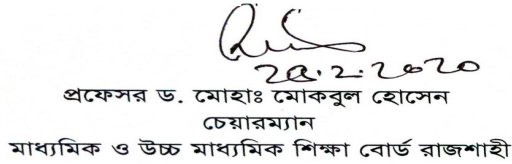 ২৫.২.২০২০
প্রফেসর ড. মোহাঃ মোকবুল হোসেন
চেয়ারম্যান
মাধ্যমিক ও উচ্চ মাধ্যমিক শিক্ষা বোর্ড রাজশাহী